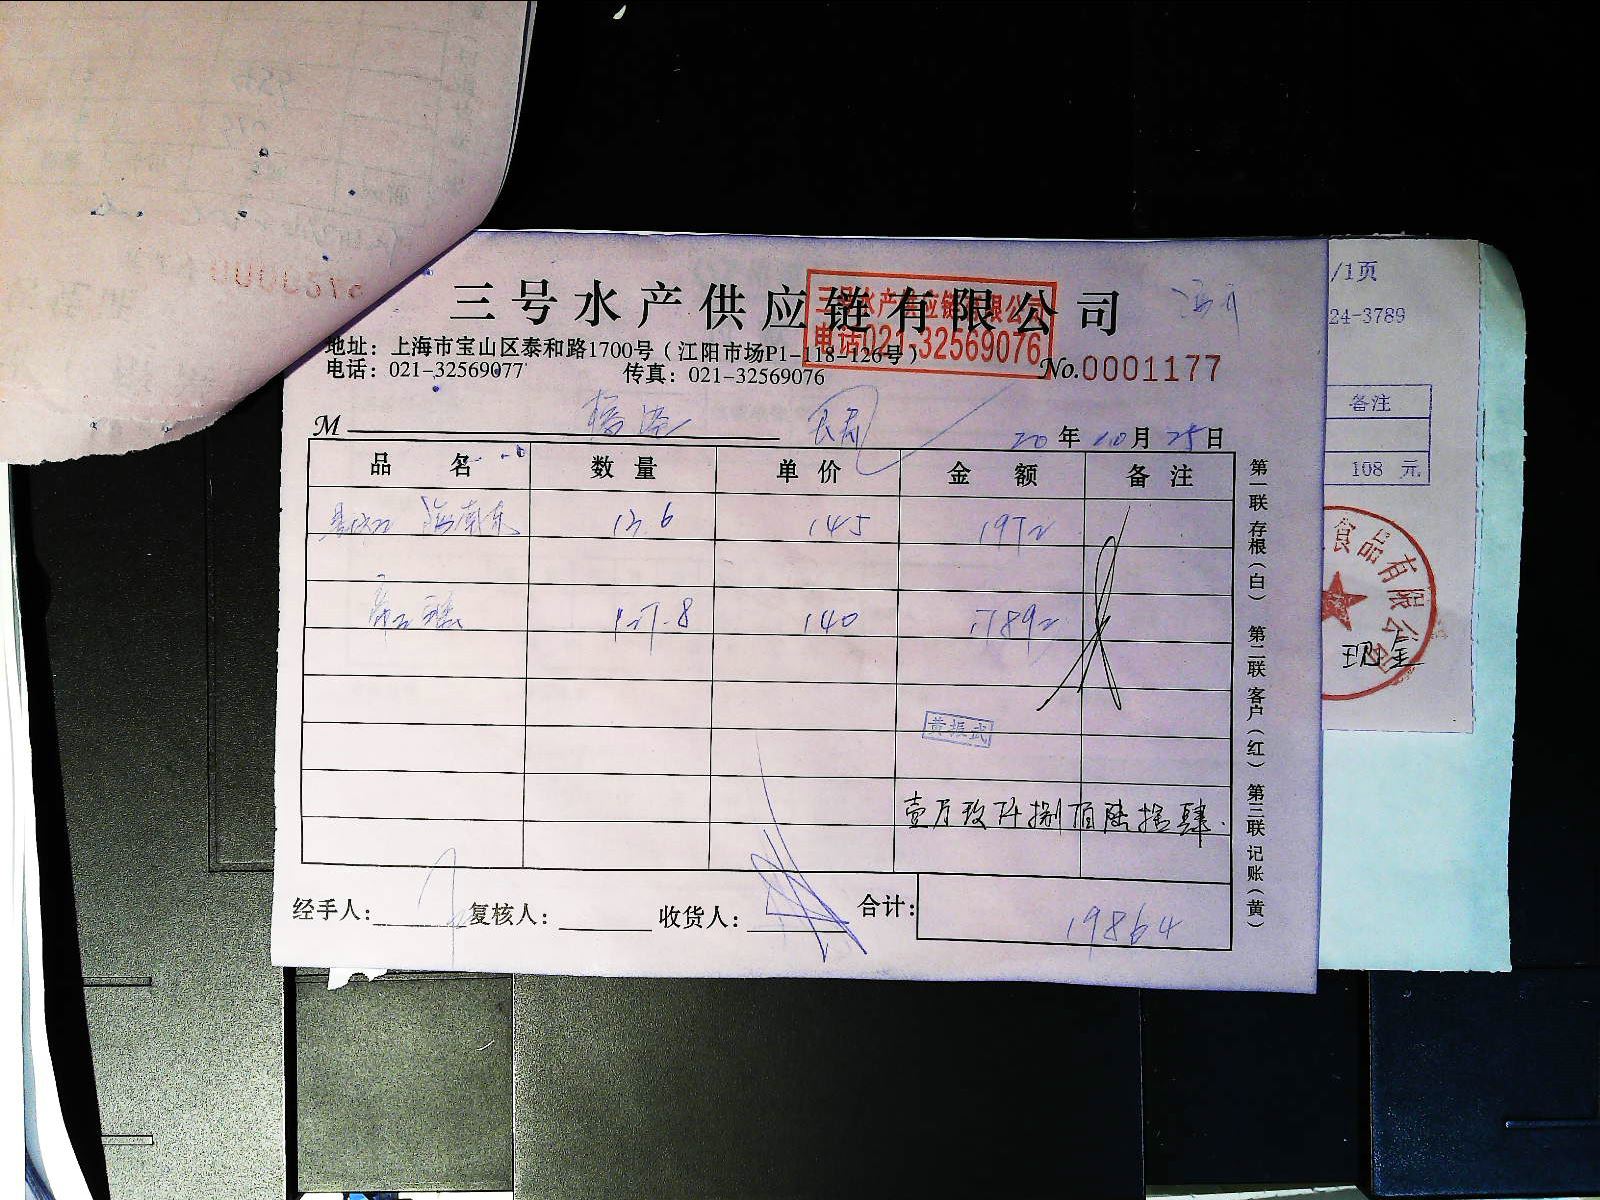 三号水产供应链有限公司
三号水产供应链有限公司
电话021-32569076
地址：上海市宝山区泰和路1700号（江阳市场P1-118-126号）
电话：021-32569077 传真：021-32569076
No.0001177
M
20年10月25日
品名 数量 单价 金额 备注
13.6 145 1972
127.8 140 17892
黄振武
壹万玖仟捌佰陆拾肆
经手人： 复核人： 收货人： 合计：
19864
第一联 存根（白） 第二联 客户（红） 第三联 记账（黄）
/1页
24-3789
备注
108 元
食品有限公司
现金